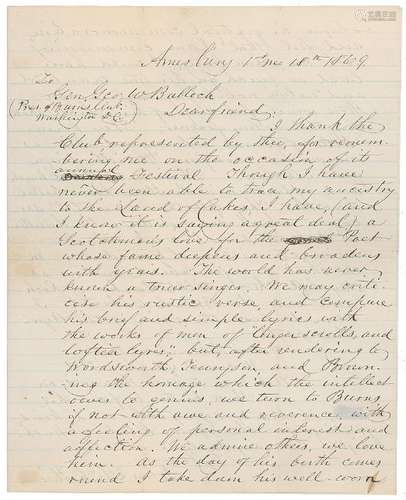 Amesbury 1st mo 18th 1869
To
Gen Geo W Bullock
(Pres. of Burns Club,
Washington D.C.
Dear friend:
I thank the
Club represented by thee, for remem-
bering me on the occasion of its
annual
Festival. Though I have
never been able to trace my ancestry
to the Land of Cakes, I have, (and
I know it is saying a great deal) a
Scotchman's love for the Poet
whose fame deepens and broadens
with years. The world has never
known a truer singer. We may criti-
cise his rustic verse and compare
his brief and simple lyrics with
the works of men of longer scrolls, and
loftier lyres; but, after rendering to
Wordsworth, Tennyson, and Brown-
ing the homage which the intellect
owes to genius, we turn to Burns
if not with awe and reverence, with
a feeling of personal interest and
affection. We admire others, we love
him. As the day of his birth comes
round I take down his well-worn